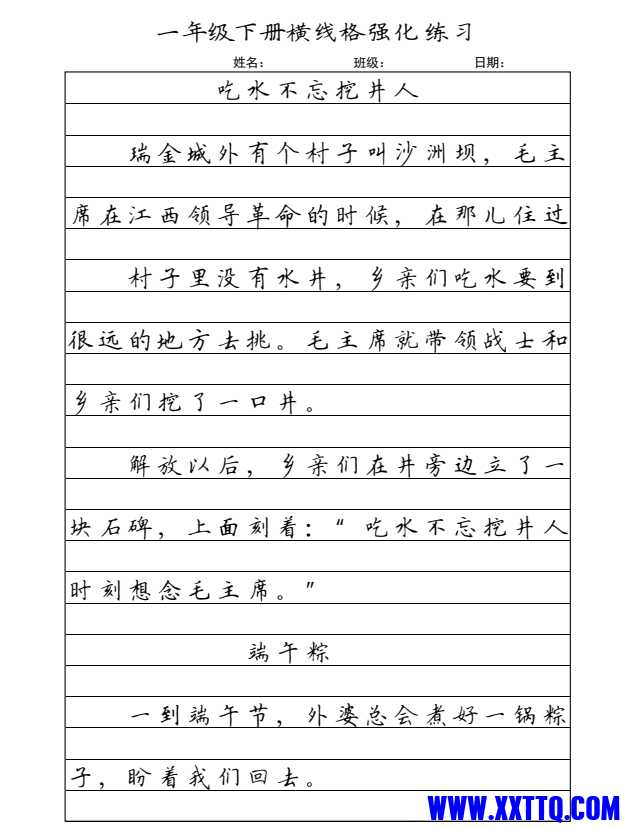 一年级下册横线格强化练习
姓名: 班级: 日期:
吃水不忘挖井人
瑞金城外有个村子叫沙洲坝，毛主
席在江西领导革命的时候，在那儿住过
村子里没有水井，乡亲们吃水要到
很远的地方去挑。毛主席就带领战士和
乡亲们挖了一口井。
解放以后，乡亲们在井旁边立了一
块石碑，上面刻着：“吃水不忘挖井人
时刻想念毛主席。”
端午粽
一到端午节，外婆总会煮好一锅粽
子，盼着我们回去。
WWW.XXTTQ.COM